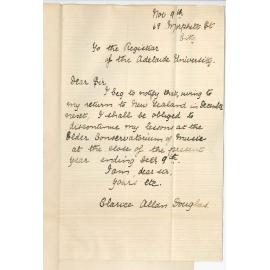 Nov 9th
69 Wyppett St
City
To the Registrar
of the Adelaide University.
Dear Sir
I beg to notify that, owing to
my return to New Zealand in December
next, I shall be obliged to
discontinue my lessons at the
Elder Conservatorium of Music
at the close of the present
year ending Decr 9th.
I am, dear sir,
Yours etc.
Clarice Allan Douglas